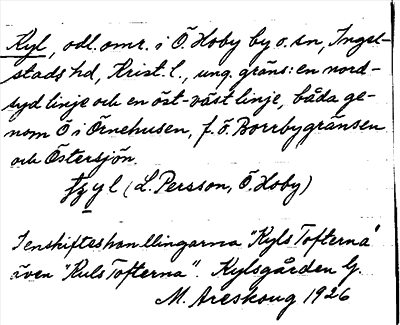 Kyl, odl. omr. i Ö. Hoby by o. sn, Ingel-
stads hd, Krist. l., ung. gräns: en nord-
syd linje och en öst-väst linje, båda ge-
nom Ö i Örnehusen, f. ö. Borrbygränsen
och Östersjön.
yl (L. Persson, Ö. Hoby)
I enskifteshandlingarna "Kyls Tofterna"
även "Kuls Tofterna". Kylsgården G.
M. Areskoug 1926